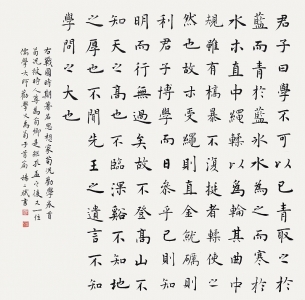 君子曰學不可以已青取之於
藍而青於藍冰水為之而寒於
水木直中繩輮以為輪其曲中
規雖有槁暴不復挺者輮使之
然也故木受繩則直金就礪則
利君子博學而日參乎己則知
明而行無過矣故不登高山不
知天之高也不臨深谿不知地
之厚也不聞先王之遺言不知
學問之大也
右戰國時期著名思想家荀況勸學卷首
荀況被時人尊為荀卿是繼孔孟之後又一位
儒學大師勸學文為荀子首篇